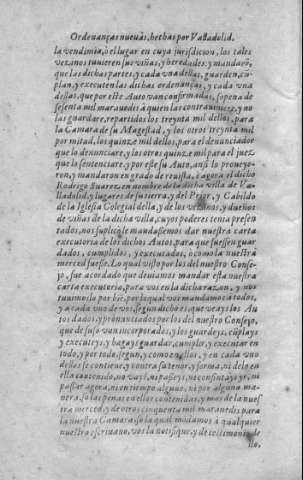 Ordenanças nueuas, hechas por Valladolid.
la vendimia, o el lugar en cuya jurisdicion, los tales
vezinos tuuieren sus viñas, y heredades: y mandarõ,
que las dichas partes, y cada vna dellas, guarden, cũ-
plan, y executen las dichas ordenanças, y cada vna
dellas, que por este Auto van confirmadas, so pena de
sesenta mil marauedis à quien las contrauiniere, y no
las guardare, repartidos los treynta mil dellos, para
la Camara de su Magestad, y los otros treynta mil
por mitad, los quinze mil dellos, para el denunciador
que lo denunciare, y los otros quinze mil para el juez
que lo sentenciare, y por este su Auto, ansi lo proueye-
ron, y mandaron en grado de reuista, è agora el dicho
Rodrigo Suarez, en nombre de la dicha villa de Va-
lladolid, y lugares de su tierra, y del Prior, y Cabildo
de la Iglesia Colegial della, y de los vezinos, y dueños
de viñas de la dicha villa, cuyos poderes tenia presen
tados, nos suplicò le mandassemos dar nuestra carta
executoria de los dichos Autos, para que fuessen guar
dados, cumplidos, y executados, ò como la nuestra
merced fuesse. Lo qual visto por los del nuestro Conse-
jo, fue acordado que deuiamos mandar esta nuestra
carta executoria, para vos en la dicha razon, y nos
tuuimoslo por biẽ, por lo qual vos mandamos à todos,
y a cada vno de vos, segun dicho es, que veays los Au
tos dados, y pronunciados por los del nuestro Consejo,
que de suso van incorporados, y los guardeys, cũplays
y executeys, y hagays guardar, cumplir, y executar en
todo, y por todo, segun, y como en ellos, y en cada vno
dellos se contiene, y contra su tenor, y forma, ni delo en
ella contenido, no vays, ni passeys, ni consintays yr, ni
passar agora, ni en tiempo alguno, ni por alguna ma-
nera, so las penas en ellos contenidas, y mas de la nues
tra merced, y de otros cinquenta mil marauedis para
la nuestra Camara, so la qual mãdamos à qualquier
nuestro escriuano, vos la notifique, y de testimonio de
llo,